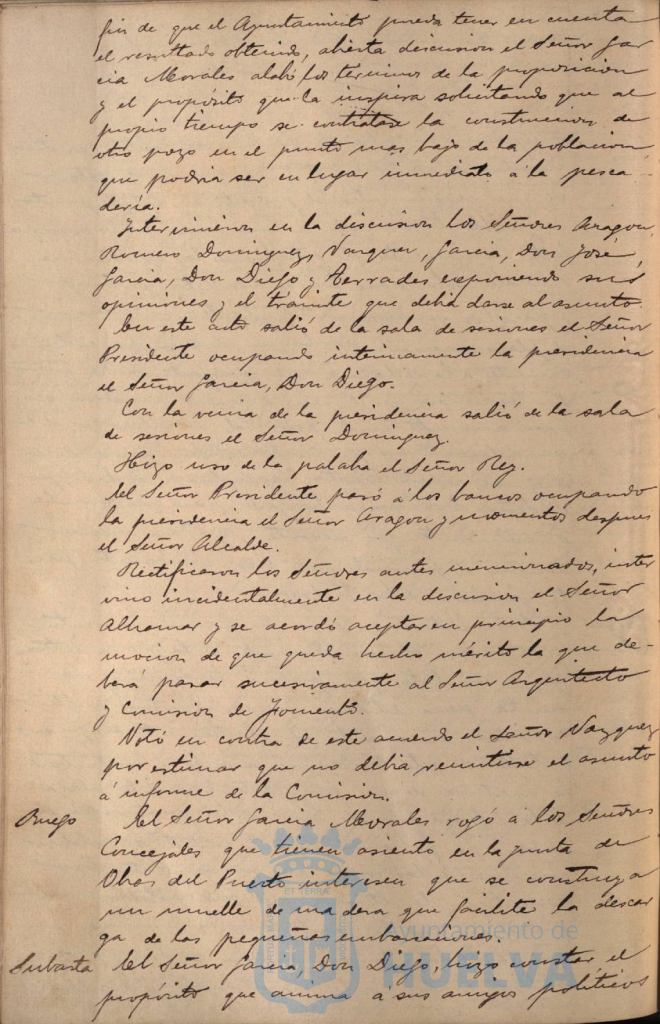 fin de que el Ayuntamiento pueda tener en cuenta
el resultado obtenido, abierta discusion el Señor Gar
cia Morales alabó los terminos de la proposicion
y el propósito que la inspira solicitando que al
propio tiempo se contratase la construccion de
otro pozo en el punto mas bajo de la poblacion
que podria ser en lugar inmediato á la pesca-
deria.
Intervinieron en la discusion los Señores Aragon,
Romero Dominguez, Vazquez, Garcia, Don José,
Garcia, Don Diego y Terrades exponiendo sus
opiniones y el tramite que debia darse al asunto.
En este acto salió de la sala de sesiones el Señor
Presidente ocupando interinamente la presidencia
el Señor Garcia, Don Diego.
Con la venia de la presidencia salió de la sala
de sesiones el Señor Dominguez.
Hizo uso de la palabra el Señor Rey.
El Señor Presidente pasó á los bancos ocupando
la presidencia el Señor Aragon y momentos despues
el Señor Alcalde.
Rectificaron los Señores antes mencionados, inter
vino incidentalmente en la discusion el Señor
Alhamar y se acordó aceptar en principio la
mocion de que queda hecho mérito la que de-
berá pasar sucesivamente al Señor Arquitecto
y Comision de Fomento.
Votó en contra de este acuerdo el Señor Vazquez
por estimar que no debia remitirse el asunto
á informe de la Comision.
Ruego El Señor Garcia Morales rogó á los Señores
Concejales que tienen asiento en la Junta de
Obras del Puerto interesen que se construya
un muelle de madera que facilite la descar
ga de las pequeñas embarcaciones.
Subasta El Señor Garcia, Don Diego, hizo constar el
propósito que anima a sus amigos politicos
Ayuntamiento de
HUELVA